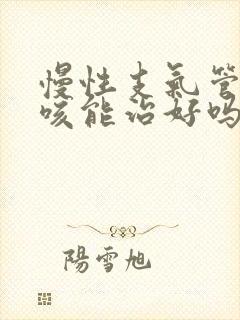 慢性支氣管
咳能治好吗
陽雪旭